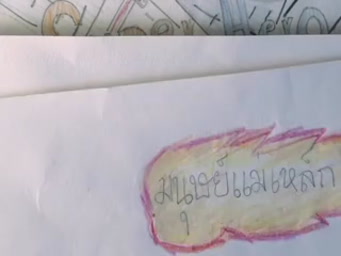 มนุษย์แม่เหล็ก